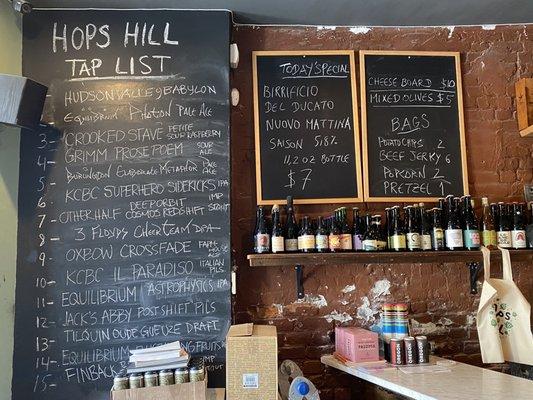 HOPS HILL
TAP LIST
HUDSON VALLEY BABYLON
EQUILIBRIUM PHOTON PALE ALE
3- CROOKED STAVE PETITE SOUR RASPBERRY
4- GRIMM PROSE POEM SOUR ALE
5- BURLINGTON ELABORATE METAPHOR PALE ALE
6- KCBC SUPERHERO SIDEKICKS IPA
7- OTHER HALF DEEP ORBIT COSMOS REDSHIFT IMP STOUT
8- 3 FLOYDS CHEER TEAM DIPA
9- OXBOW CROSSFADE FARM ALE
10- KCBC IL PARADISO ITALIAN PILS
11- EQUILIBRIUM ASTROPHYSICS IPA
12- JACK'S ABBY POST SHIFT PILS
13- TILQUIN OUDE GUEUZE DRAFT
14- EQUILIBRIUM
15- FINBACK
TODAY'S SPECIAL
BIRRIFICIO
DEL DUCATO
NUOVO MATTINA
SAISON 5.8%
11.2 OZ BOTTLE
$7
CHEESE BOARD $10
MIXED OLIVES $5
BAGS
POTATO CHIPS 2
BEEF JERKY 6
POPCORN 2
PRETZEL 1